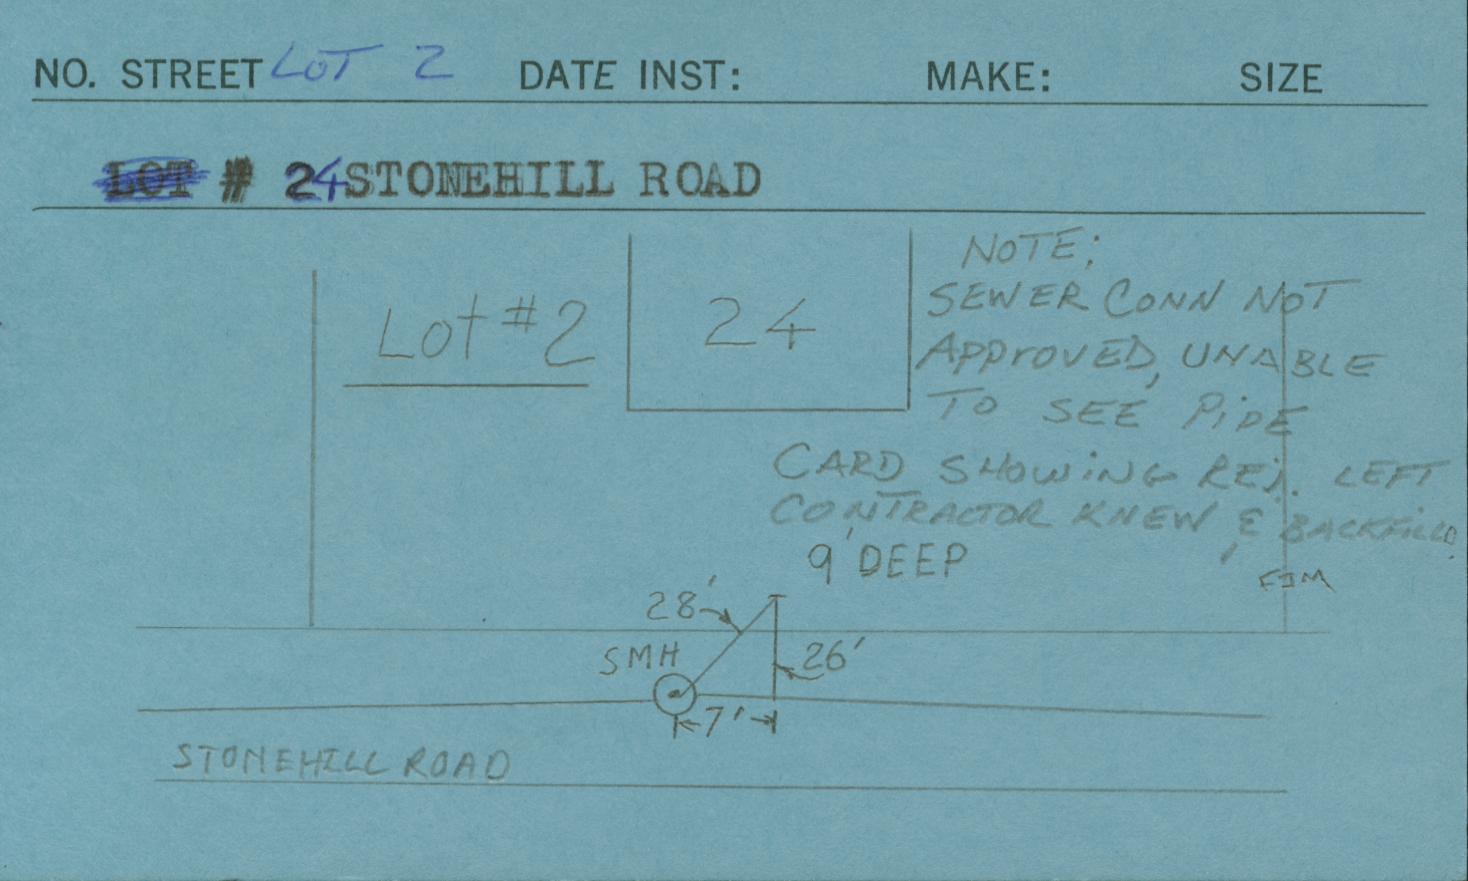 NO. STREET LOT 2 DATE INST: MAKE: SIZE
LOT # 24 STONEHILL ROAD
Lot #2
24
NOTE:
SEWER CONN NOT
APPROVED, UNABLE
TO SEE PIPE
CARD SHOWING REJ. LEFT
CONTRACTOR KNEW, & BACKFILLED.
9' DEEP
FJM
28'
SMH
26'
7'
STONEHILL ROAD